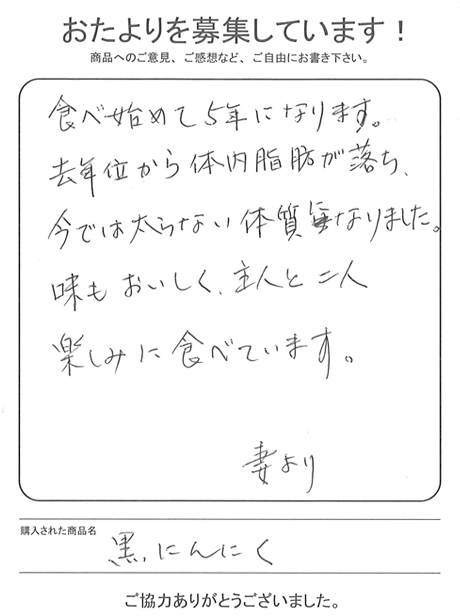 おたよりを募集しています！
商品へのご意見、ご感想など、ご自由にお書き下さい。
食べ始めて5年になります。
去年位から体内脂肪が落ち、
今では太らない体質になりました。
味もおいしく、主人と二人
楽しみに食べています。
妻より
購入された商品名
黒にんにく
ご協力ありがとうございました。